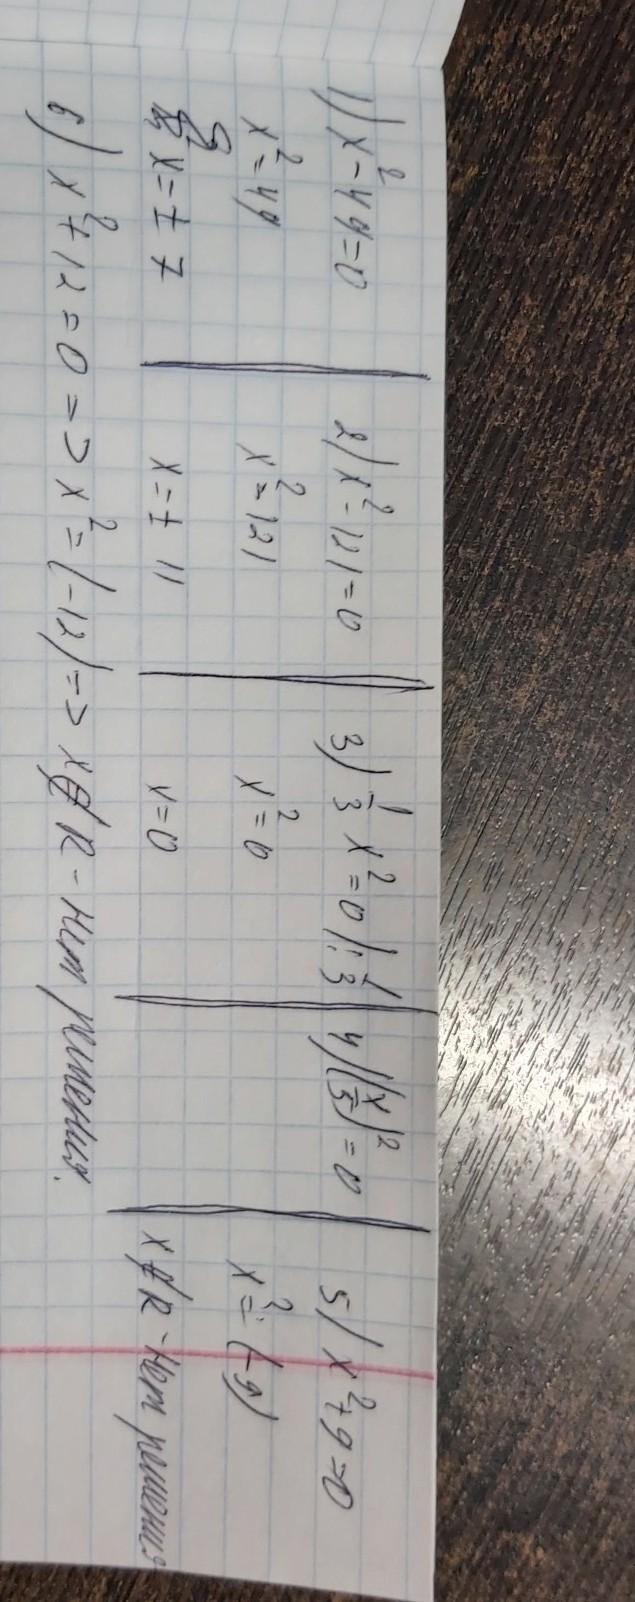 1) x² - 49 = 0
x² = 49
x = ± 7
2) x² - 121 = 0
x² = 121
x = ± 11
3) 1/3 x² = 0 /: 1/3
x² = 0
x = 0
4) (x/5)² = 0
5) x² + 9 = 0
x² = (-9)
x ∉ R - нет решения
6) x² + 12 = 0 => x² = (-12) => x ∉ R - нет решения.